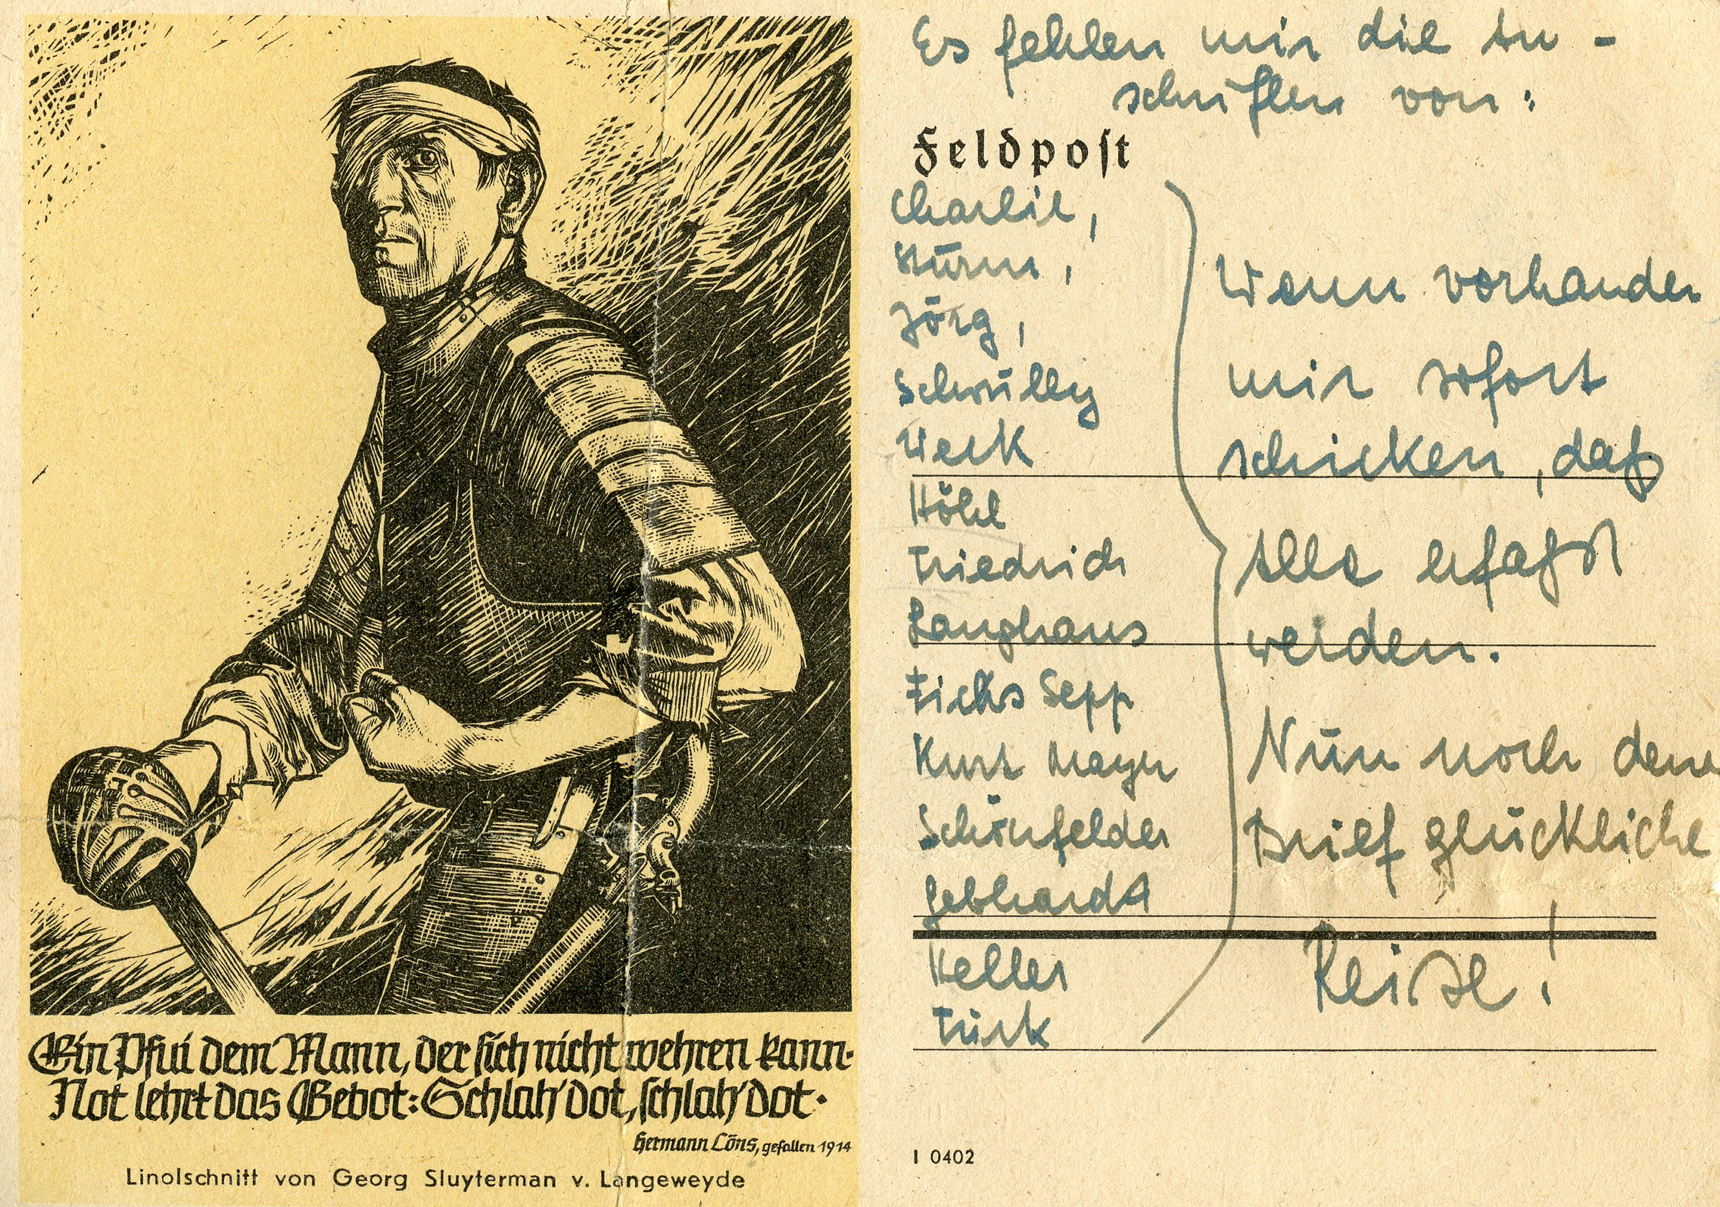 Ein Pfui dem Mann, der sich nicht wehren kann·
Not lehrt das Gebot: Schlah' dot, schlah' dot·
Hermann Löns, gefallen 1914
Linolschnitt von Georg Sluyterman v. Langeweyde
Es fehlen mir die An-
schriften von:
Feldpost
Charlie,
Jörg,
Schnully
Werk
Höhl
Friedrich
Langhans
Ficks Sepp
Kurt Mayer
Schönfelder
Gebhardt
Keller
Türk
Wenn vorhanden
mir sofort
schicken, daß
Alle erfaßt
werden.
Nun noch dem
Brief glückliche
Reise!
I 0402